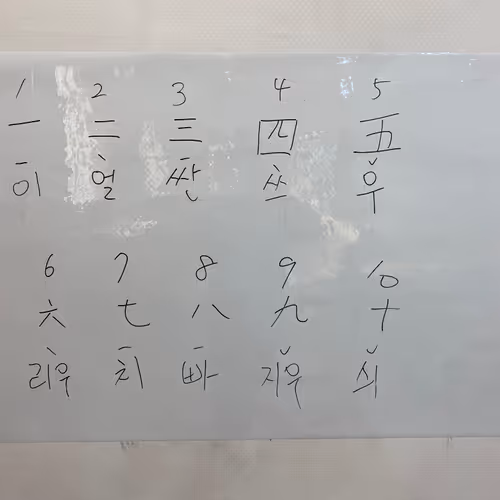 1 2 3 4 5
一 二 三 四 五
이̄ 얼̀ 싼̄ 쓰̀ 우̌
6 7 8 9 10
六 七 八 九 十
리우̀ 치̄ 빠̄ 지우̌ 싀̌